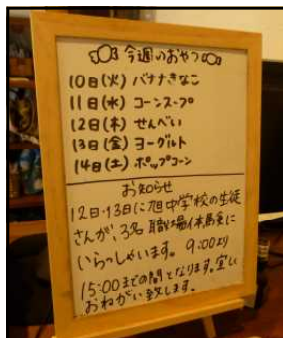 今週のおやつ
10日(火) バナナきなこ
11日(水) コーンスープ
12日(木) せんべい
13日(金) ヨーグルト
14日(土) ポップコーン
お知らせ
12日・13日に旭中学校の生徒
さんが、3名 職場体験に
いらっしゃいます。 9:00より
15:00までの間となります。宜しく
おねがい致します。